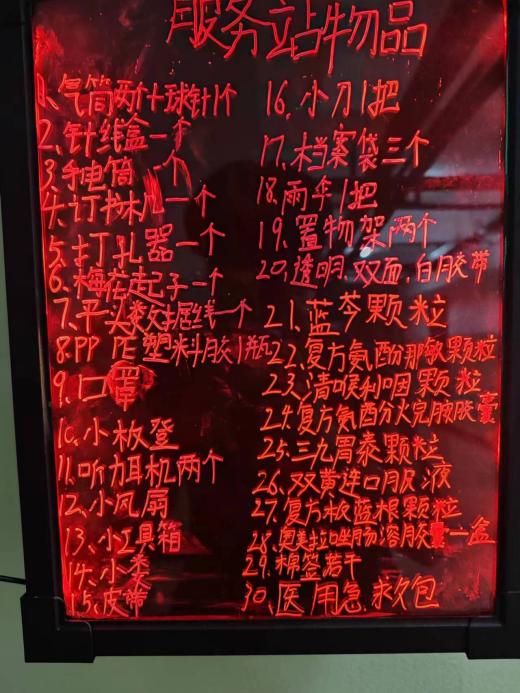 服务站物品
1、气筒两个+球针1个
2、针线盒一个
3、手电筒一个
4、订书机一个
5、打孔器一个
6、梅花起子一个
7、平头类数据线一个
8、PP PE塑料胶1瓶
9、口罩
10、小板登
11、听力耳机两个
12、小风扇
13、小工具箱
14、小类
15、皮带
16、小刀1把
17、档案袋三个
18、雨伞1把
19、置物架两个
20、透明、双面、白胶带
21、蓝芩颗粒
22、复方氨酚那敏颗粒
23、清喉利咽颗粒
24、复方氨酚烷胺胶囊
25、三九胃泰颗粒
26、双黄连口服液
27、复方板蓝根颗粒
28、奥美拉唑肠溶胶囊一盒
29、棉签若干
30、医用急救包